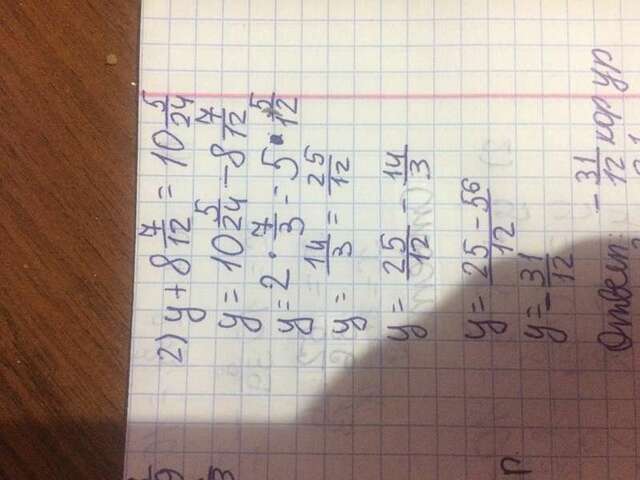 2) y + 8 7/12 = 10 5/24
y = 10 5/24 - 8 7/12
y = 2 · 7/3 - 5 · 5/12
y = 14/3 = 25/12
y = 25/12 - 14/3
y = 25 - 56/12
y = - 31/12
Ответ: - 31/12 кор ур